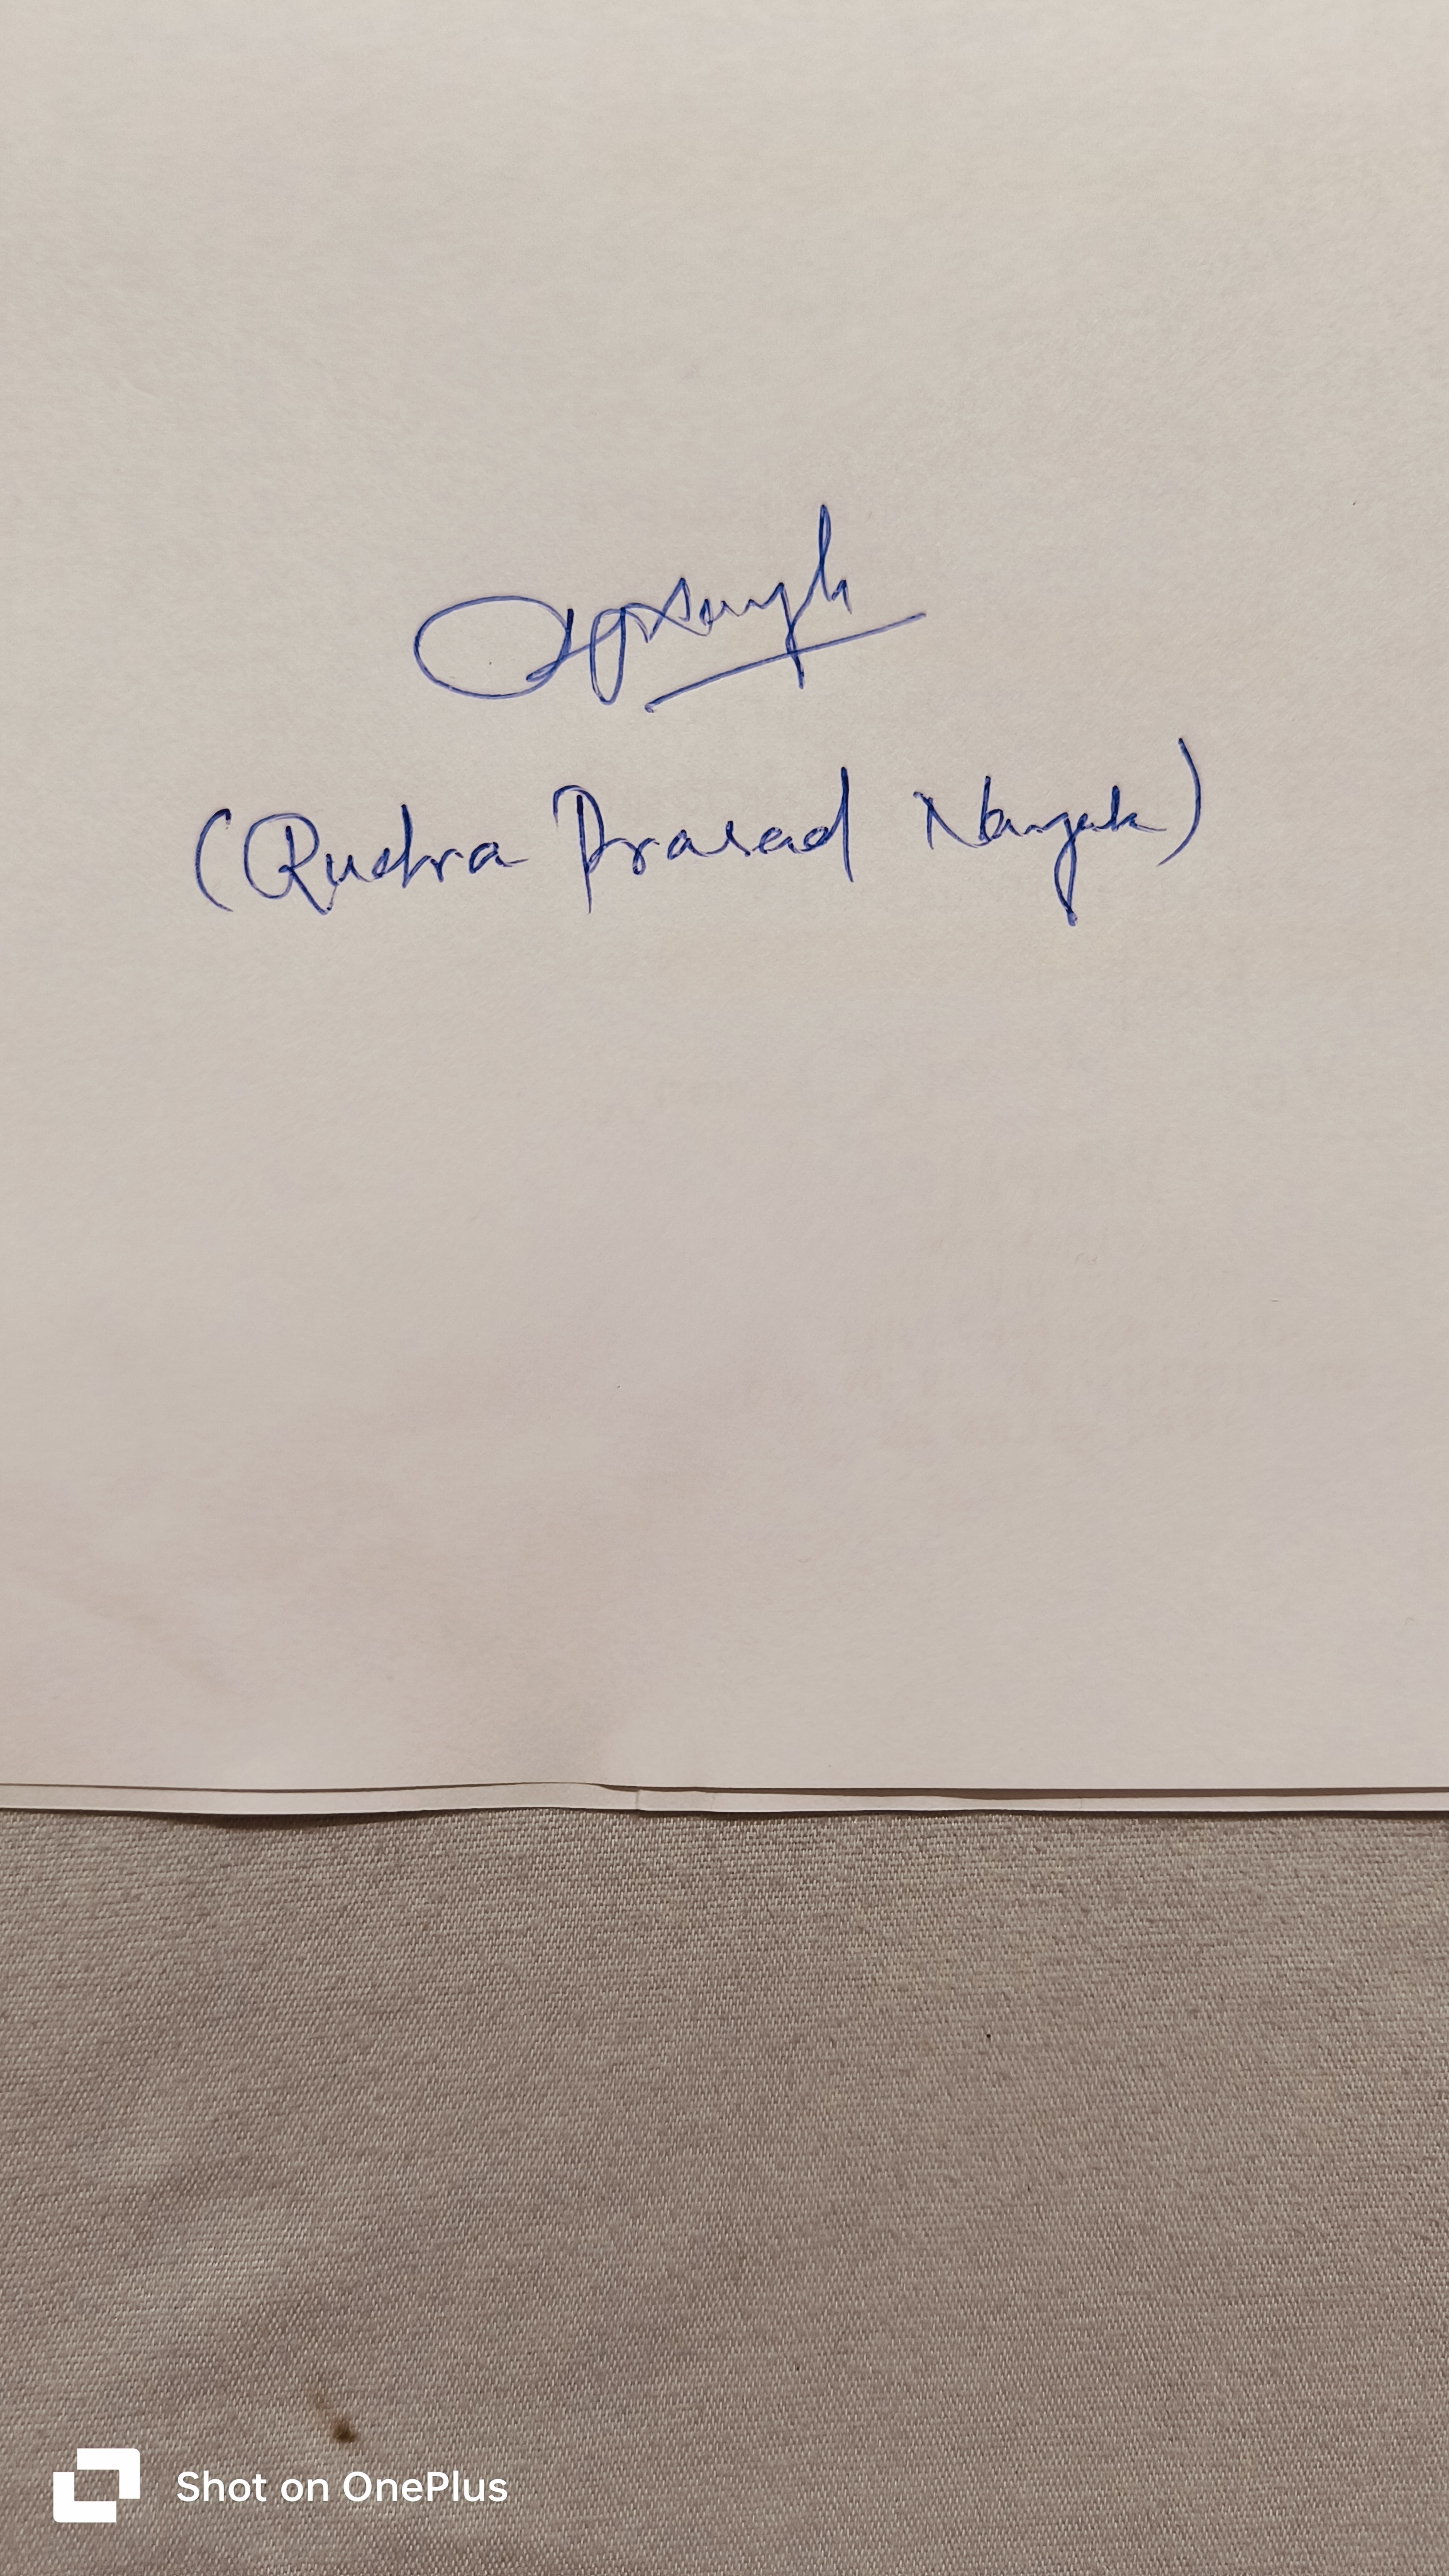 (Rudra Prasad Nayak)
Shot on OnePlus